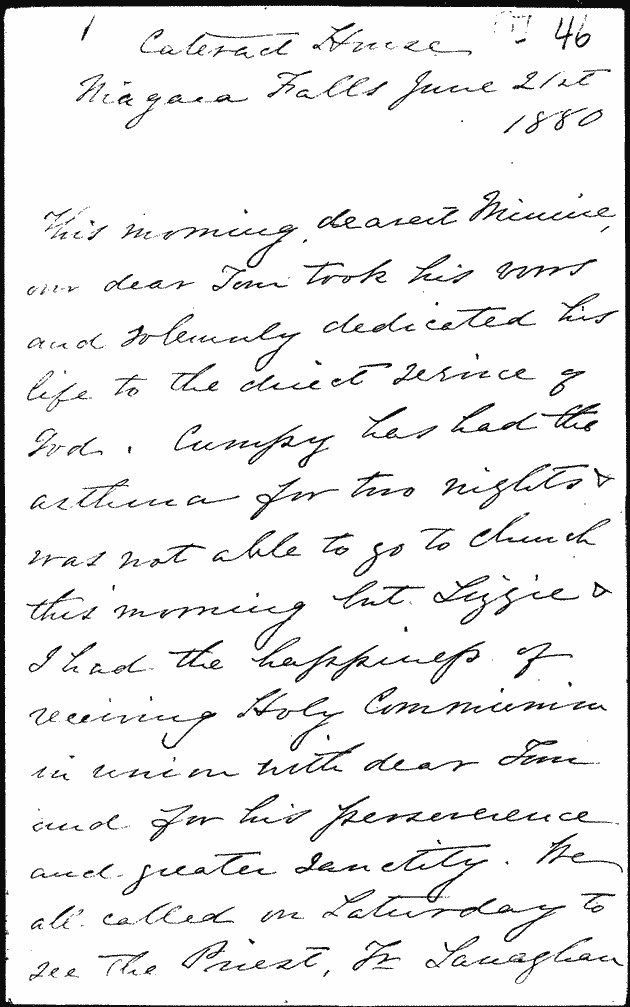 1
46
Cateract House
Niagara Falls June 21st
1880
This morning, dearest Minnie,
our dear Tom took his vows
and solemnly dedicated his
life to the direct service of
God. Cumpy has had the
asthma for two nights &
was not able to go to church
this morning but Lizzie &
I had the happiness of
receiving Holy Communion
in union with dear Tom
and for his perseverence
and greater sanctity. We
all called on Saturday to
see the Priest, Fr Lanaghan